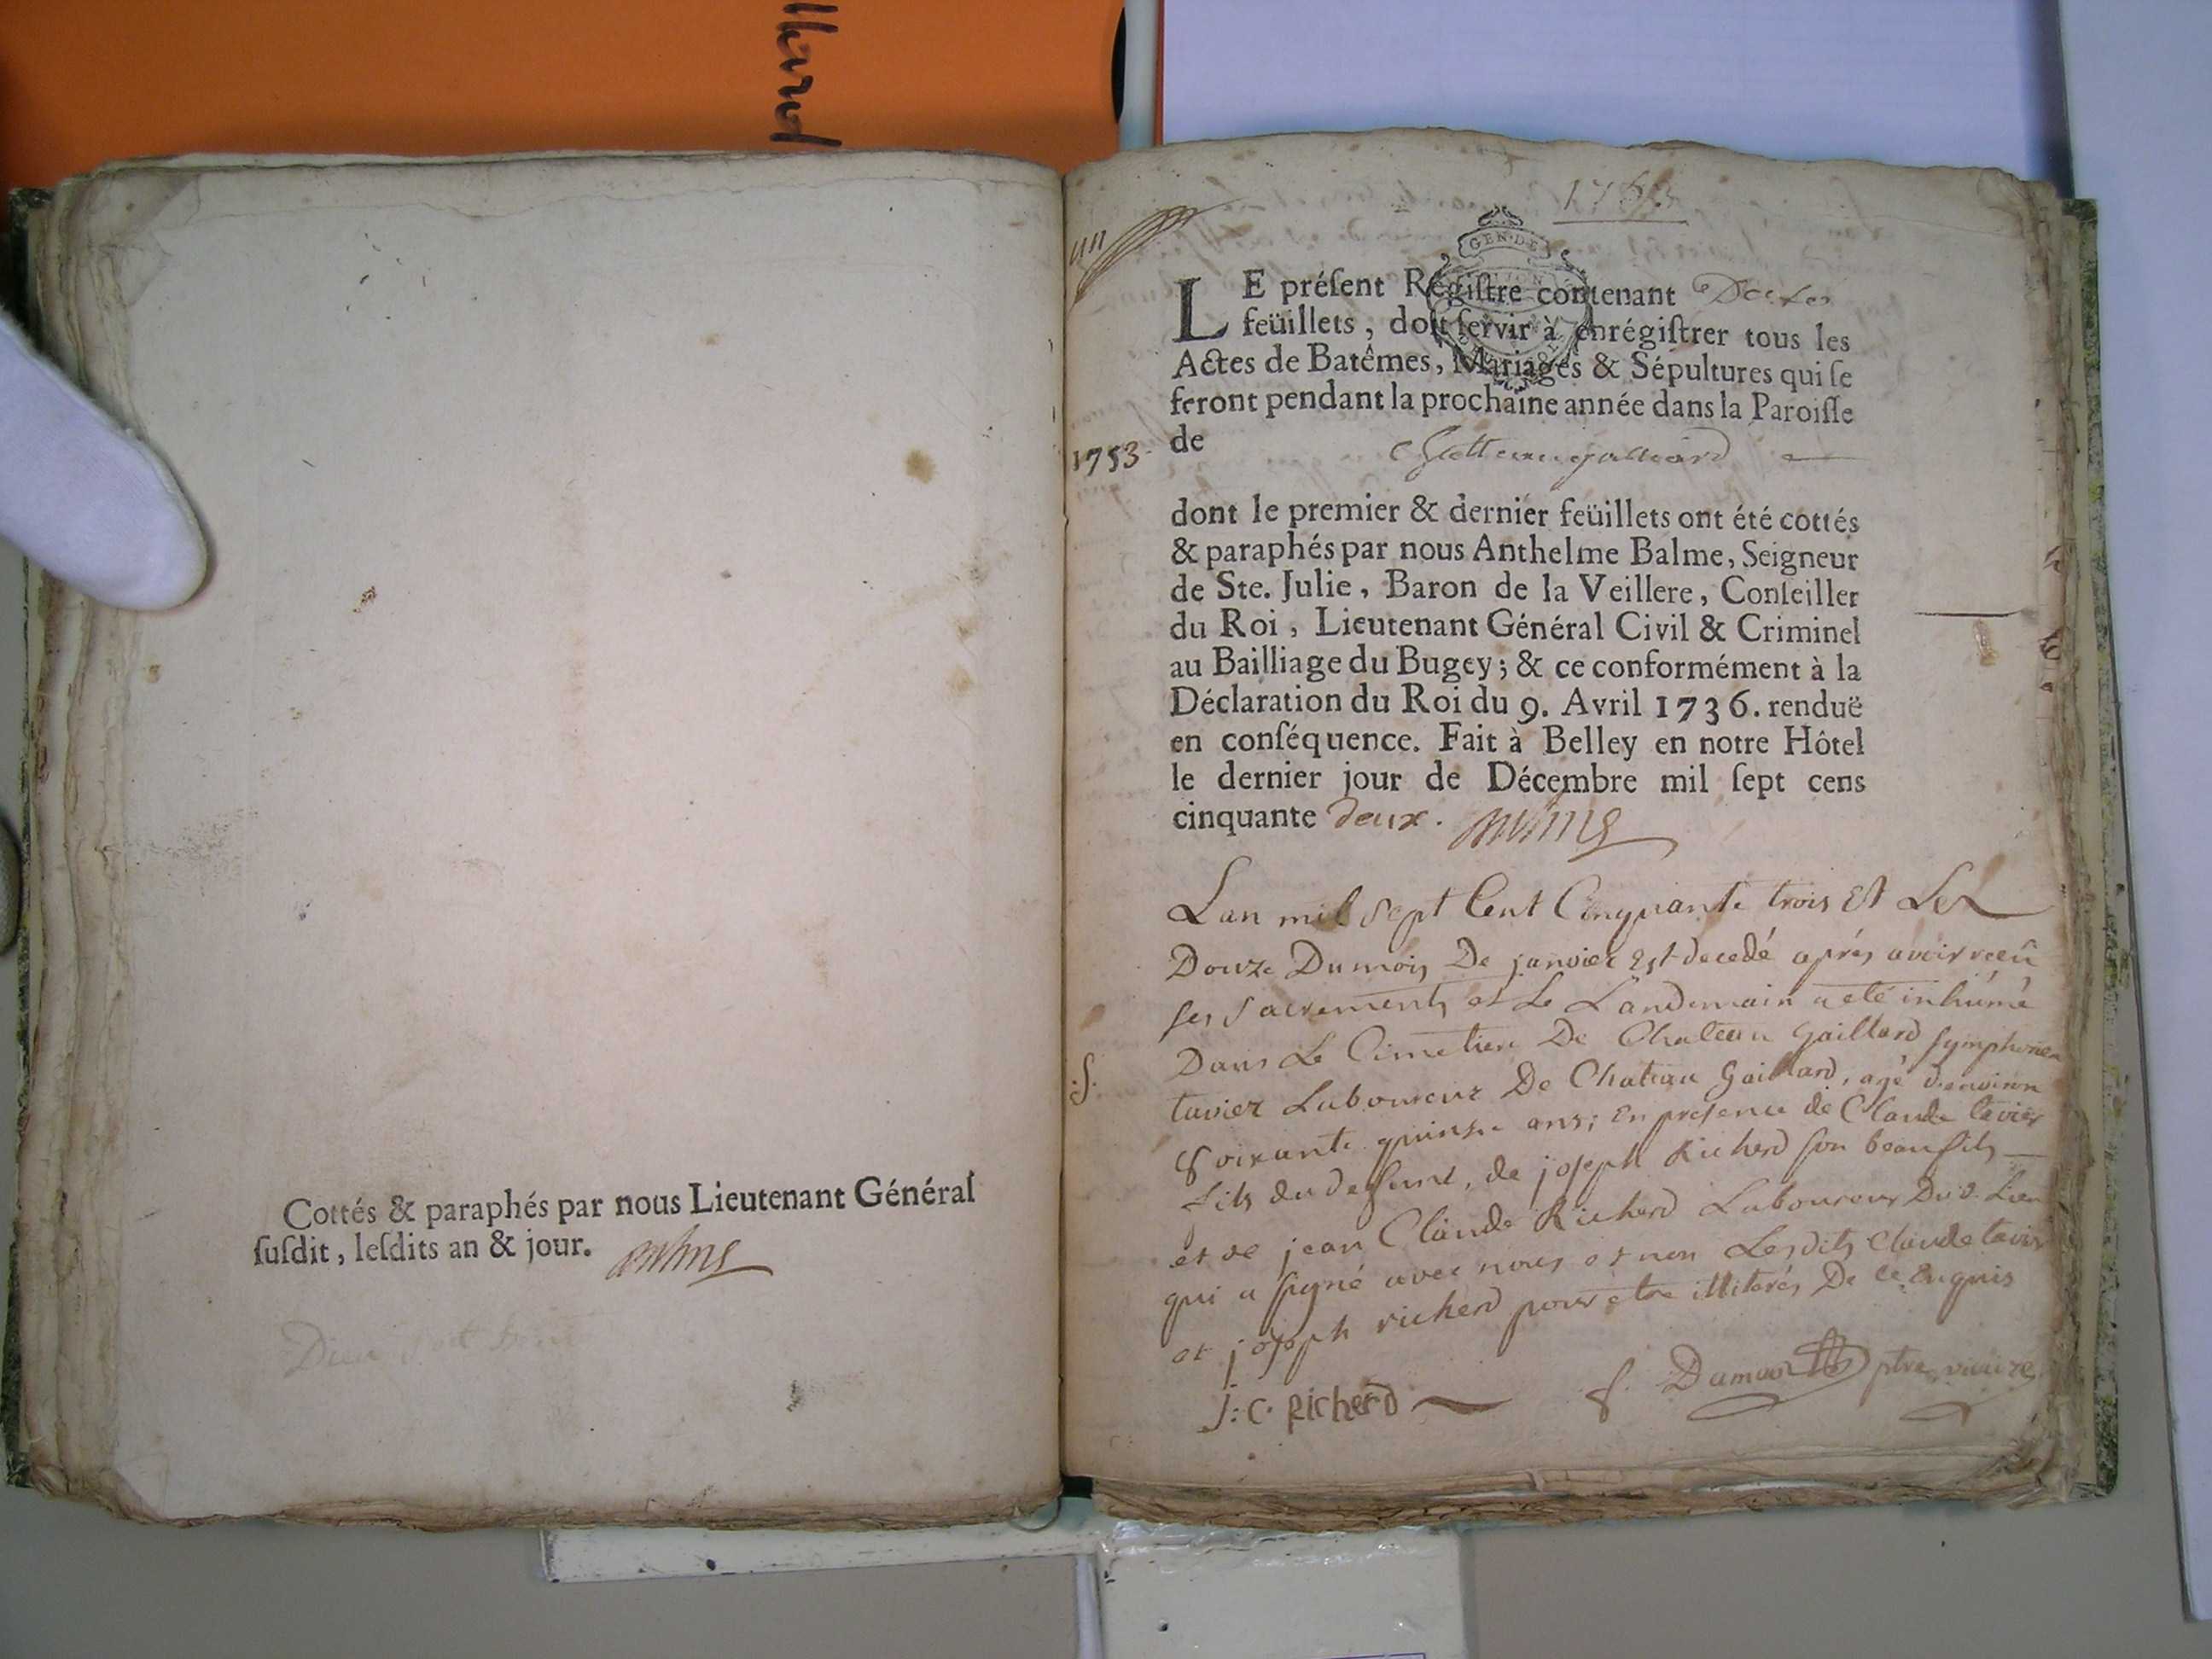 llard
Cottés & paraphés par nous Lieutenant Général
ſuſdit, leſdits an & jour.
Dieu soit
un
1753
GEN. DE
LE préſent Régiſtre contenant
feüillets, doit ſervir à enrégiſtrer tous les
Actes de Batêmes, Mariages & Sépultures qui ſe
feront pendant la prochaine année dans la Paroiſſe
de Chatteaugalliard
1753
dont le premier & dernier feüillets ont été cottés
& paraphés par nous Anthelme Balme, Seigneur
de Ste. Julie, Baron de la Veillere, Conſeiller
du Roi, Lieutenant Général Civil & Criminel
au Bailliage du Bugey; & ce conformément à la
Déclaration du Roi du 9. Avril 1736. renduë
en conſéquence. Fait à Belley en notre Hôtel
le dernier jour de Décembre mil ſept cens
cinquante deux.
Lan mil sept Cent Cinquante trois Et Le
Douze Du mois De janvier Est decedé aprés avoir receû
ses sacrements et Le Landemain a eté inhúmé
Dans Le Cimetiere De Chateau Gaillard symphorien
.S.
tavier Laboureur De Chateau Gaillard, agé d'environ
Soixante quinze ans; En presence de Claude tavier
fils du defunt, de joseph Richerd son beaufils
et de jean Claude Richerd Laboureur Dud. Lieu
qui a signé avec nous et non Lesdits Claude tavier
et joseph richerd pour etre illiterés De ce Enquis
J: C. Richerd
ptre vicaire